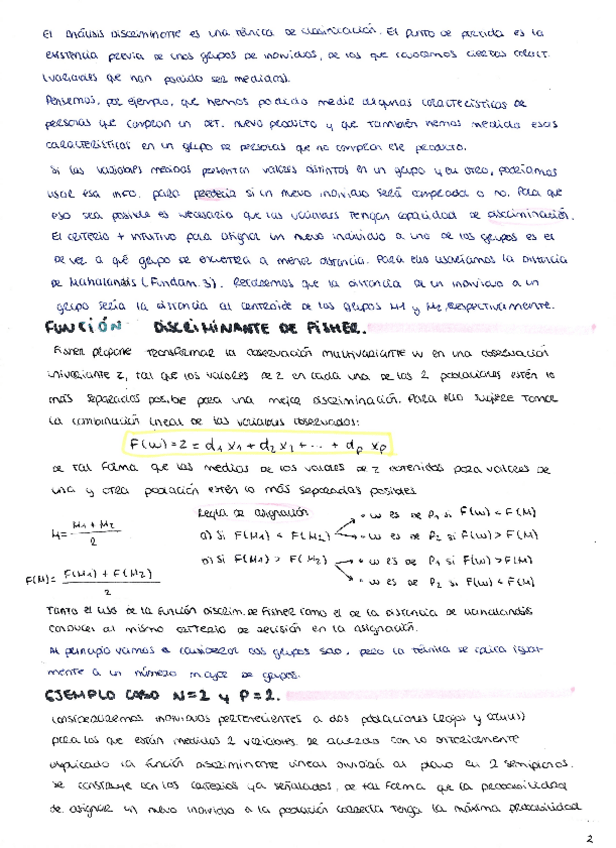 El Análisis Discriminante es una técnica de clasificación. El punto de partida es la
existencia previa de unos grupos de individuos, de los que conocemos ciertas caract.
(variables que han podido ser medidas).
Pensemos, por ejemplo, que hemos podido medir algunas características de
personas que compran un det. nuevo producto y que también hemos medido esas
características en un grupo de personas que no compran ese producto.
Si las variables medidas presentan valores distintos en un grupo y en otro, podríamos
usar esa info. para predecir si un nuevo individuo será comprador o no. Para que
eso sea posible es necesario que las variables tengan capacidad de discriminación.
El criterio + intuitivo para asignar un nuevo individuo a uno de los grupos es el
de ver a qué grupo se encuentra a menor distancia. Para ello usaríamos la distancia
de Mahalanobis (Fundam. 3). Recordemos que la distancia de un individuo a un
grupo sería la distancia al centroide de los grupos M1 y M2, respectivamente.
FUNCIÓN DISCRIMINANTE DE FISHER.
Fisher propone transformar la observación multivariante w en una observación
univariante z, tal que los valores de z en cada una de las 2 poblaciones estén lo
más separados posible para una mejor discriminación. Para ello sugiere tomar
la combinación lineal de las variables observadas:
F(w) = z = d1 x1 + d2 x2 + ... + dp xp
de tal forma que las medias de los valores de z obtenidos para valores de
una y otra población estén lo más separadas posibles
Regla de asignación
M = M1 + M2 / 2
a) Si F(M1) < F(M2) • w es de P1 si F(w) < F(M)
• w es de P2 si F(w) > F(M)
F(M) = F(M1) + F(M2) / 2
b) Si F(M1) > F(M2) • w es de P1 si F(w) > F(M)
• w es de P2 si F(w) < F(M)
Tanto el uso de la función discrim. de Fisher como el de la distancia de Mahalanobis
conducen al mismo criterio de decisión en la asignación.
Al principio vamos a considerar dos grupos solo, pero la técnica se aplica igual-
mente a un número mayor de grupos.
EJEMPLO CASO N=2 y P=2.
Consideraremos individuos pertenecientes a dos poblaciones (rojos y azules)
para los que están medidas 2 variables. De acuerdo con lo anteriormente
explicado la función discriminante lineal dividirá al plano en 2 semiplanos.
Se construye con los criterios ya señalados, de tal forma que la probabilidad
de asignar un nuevo individuo a la población correcta tenga la máxima probabilidad
2